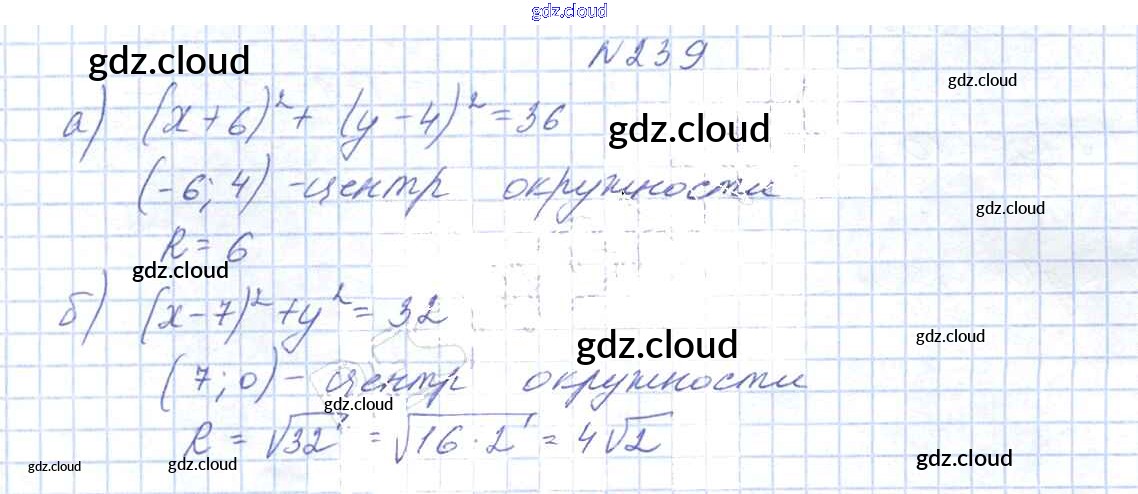 gdz.cloud
№239
gdz.cloud
gdz.cloud
а) (x+6)²+ (y-4)²=36
gdz.cloud
(-6; 4) -центр окружности
gdz.cloud
R = 6
gdz.cloud
б) (x-7)²+y²= 32
gdz.cloud
gdz.cloud
(7; 0) - центр окружности
gdz.cloud
R = √32 = √16·2 = 4√2
gdz.cloud
gdz.cloud
gdz.cloud